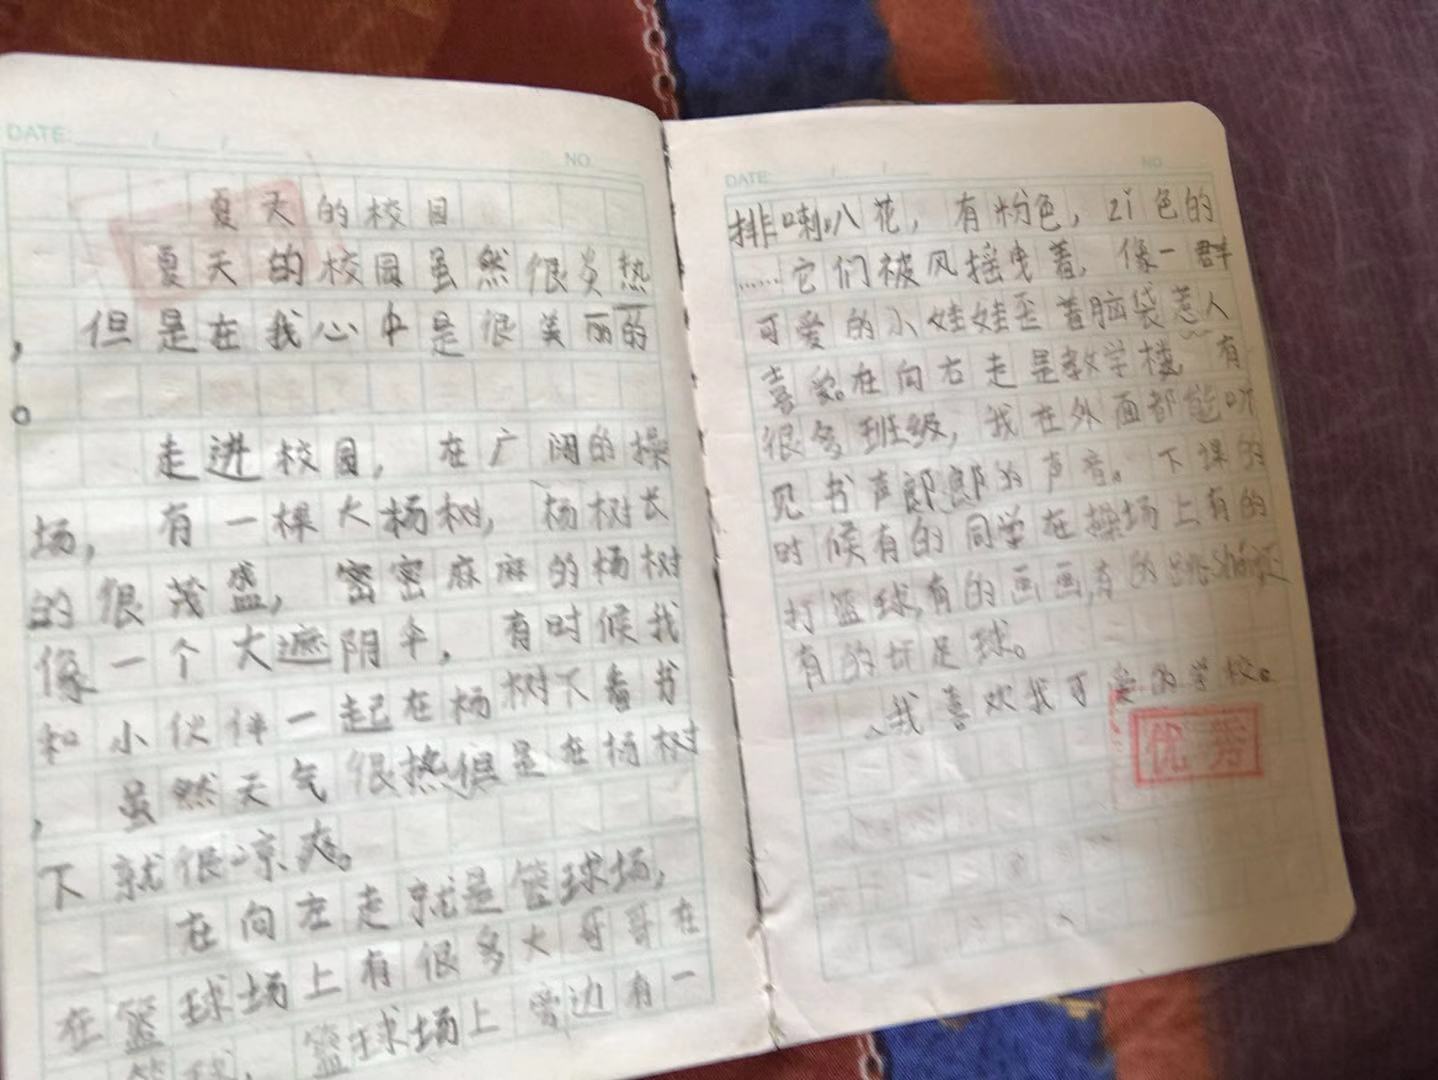 DATE: / /
NO
夏天的校园
夏天的校园虽然很炎热
，但是在我心中是很美丽的
。
走进校园，在广阔的操
场，有一棵大杨树，杨树长
的很茂盛，密密麻麻的杨树
像一个大遮阴伞，有时候我
和小伙伴一起在杨树下看书
，虽然天气很热但是在杨树
下就很凉爽。
在向左走就是篮球场，
在篮球场上有很多大哥哥在
篮球，篮球场上旁边有一
DATE: / /
NO
排喇叭花，有粉色，zi色的
……它们被风摇曳着，像一群
可爱的小娃娃歪着脑袋惹人
喜爱。在向右走是教学楼，有
很多班级，我在外面都能听
见书声郎郎的声音。下课的
时候有的同学在操场上有的
打篮球，有的画画，有的跳
有的玩足球。
我喜欢我可爱的学校。
优秀